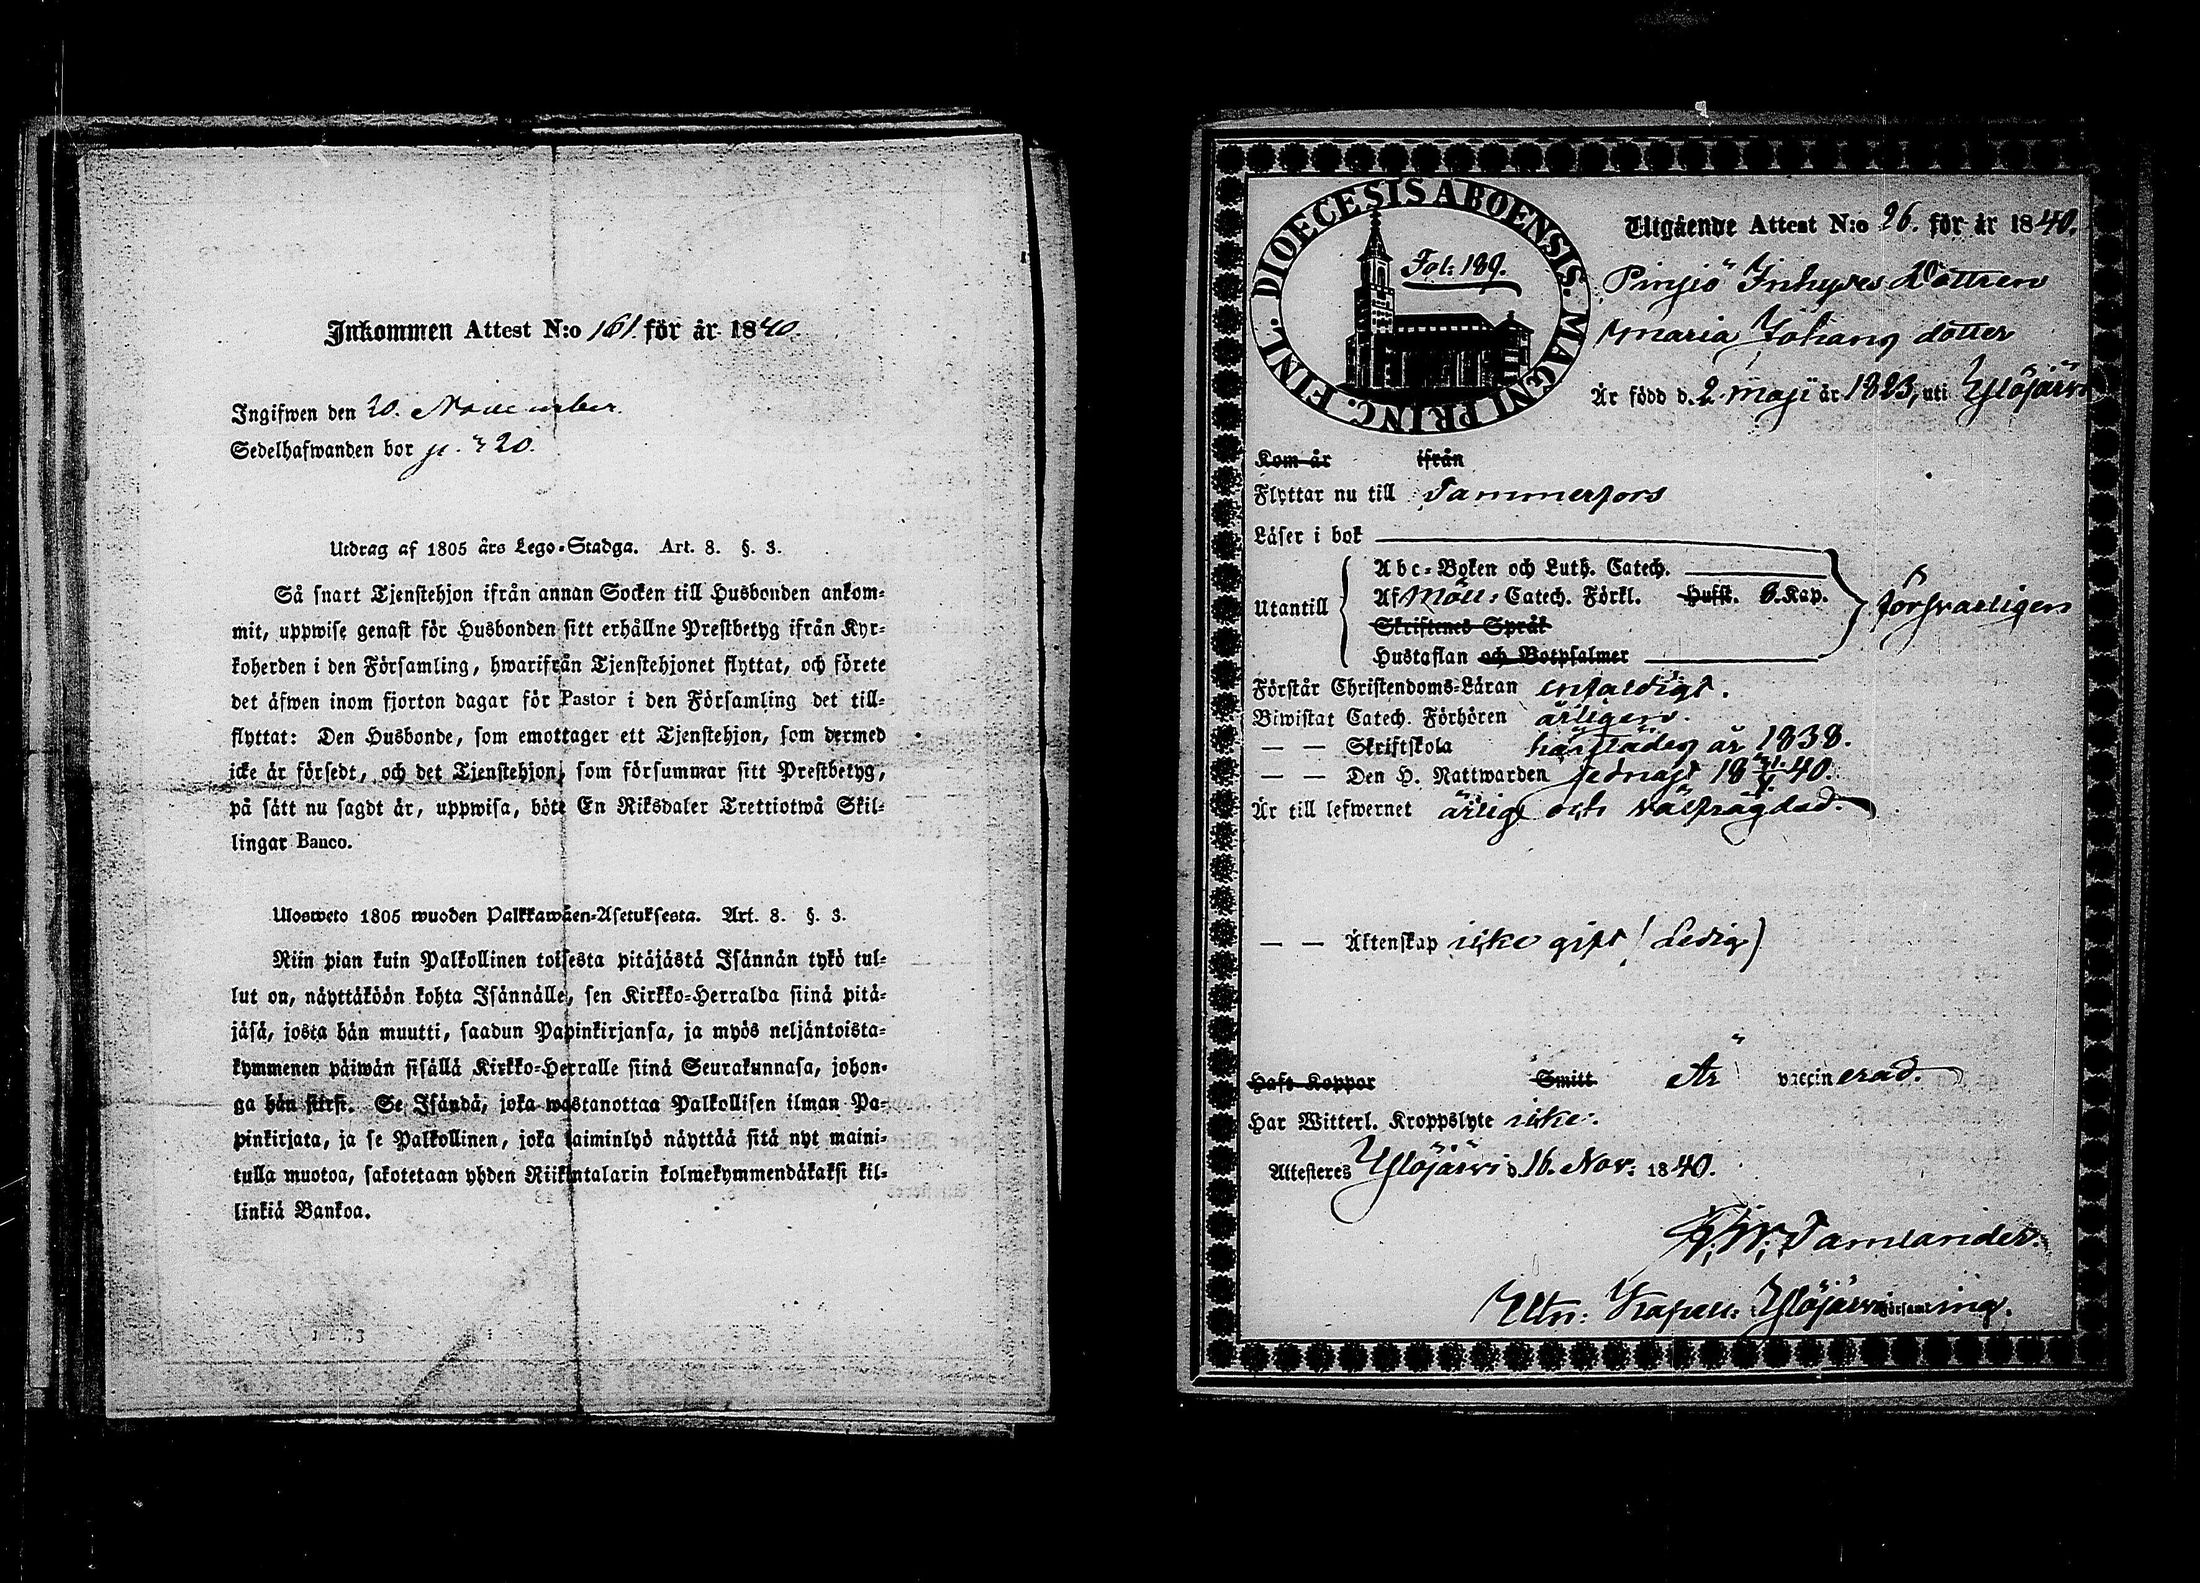 Inkommen Attest N:o 161. för år 1840.
Ingifwen den 20. November.
Sedelhafwanden bor
Utdrag af 1805 års Lego-Stadga. Art. 8. §. 3.
Så snart Tjenstehjon ifrån annan Socken till Husbonden ankom-
mit, uppwise genast för Husbonden sitt erhållne Prestbetyg ifrån Kyr-
koherden i den Församling, hwarifrån Tjenstehjonet flyttat, och förete
det äfwen inom fjorton dagar för Pastor i den Församling det till-
flyttat: Den Husbonde, som emottager ett Tjenstehjon, som dermed
icke är försedt, och det Tjenstehjon, som försummar sitt Prestbetyg,
på sätt nu sagdt är, uppwisa, böte En Riksdaler Trettiotwå Skil-
lingar Banco.
Ulosweto 1805 wuoden Palkkawäen-Asetuksesta. Art. 8. §. 3.
Niin pian kuin Palkollinen toisesta pitäjästä Isännän tykö tul-
lut on, näyttäköön kohta Isännälle, sen Kirkko-Herralda siinä pitä-
jäsä, josta hän muutti, saadun Papinkirjansa, ja myös neljäntoista-
kymmenen päiwän sisällä Kirkko-Herralle siinä Seurakunnasa, johon-
ga hän siirsi. Se Isändä, joka wastanottaa Palkollisen ilman Pa-
pinkirjata, ja se Palkollinen, joka laiminlyö näyttää sitä nyt maini-
tulla muotoa, sakotetaan yhden Riikintalarin kolmekymmendäkaksi kil-
linkiä Bankoa.
DIOECESIS ABOENSIS. MAGNI PRINC. FINL.
Fol: 189.
Utgående Attest N:o 26. för år 1840.
Pinsiö Inhyses Dottren
Maria Johans dotter
Är född d. 2 Maji år 1823, uti Ylöjärvi
Kom år ifrån
Flyttar nu till Tammerfors
Läser i bok
Utantill
Abc-Boken och Luth. Catech.
Af Möll: Catech. Förkl. Hufst. 6. Kap.
Skriftenes Språk
Hustaflan och Botpsalmer
försvarligen
Förstår Christendoms-Läran enfaldigt.
Biwistat Catech. Förhören årligen.
— — Skriftskola härstädes år 1838.
— — Den H. Nattwarden sednast 18 40.
Är till lefwernet ärlig och välfrägdad.
— — Äktenskap icke gift (Ledig)
Haft Koppor Smitt Är vaccinerad.
Har Witterl. Kroppslyte icke.
Attesteres Ylöjärvi d. 16. Nov: 1840.
Tamlander.
Kapell: Ylöjärvi Församling.